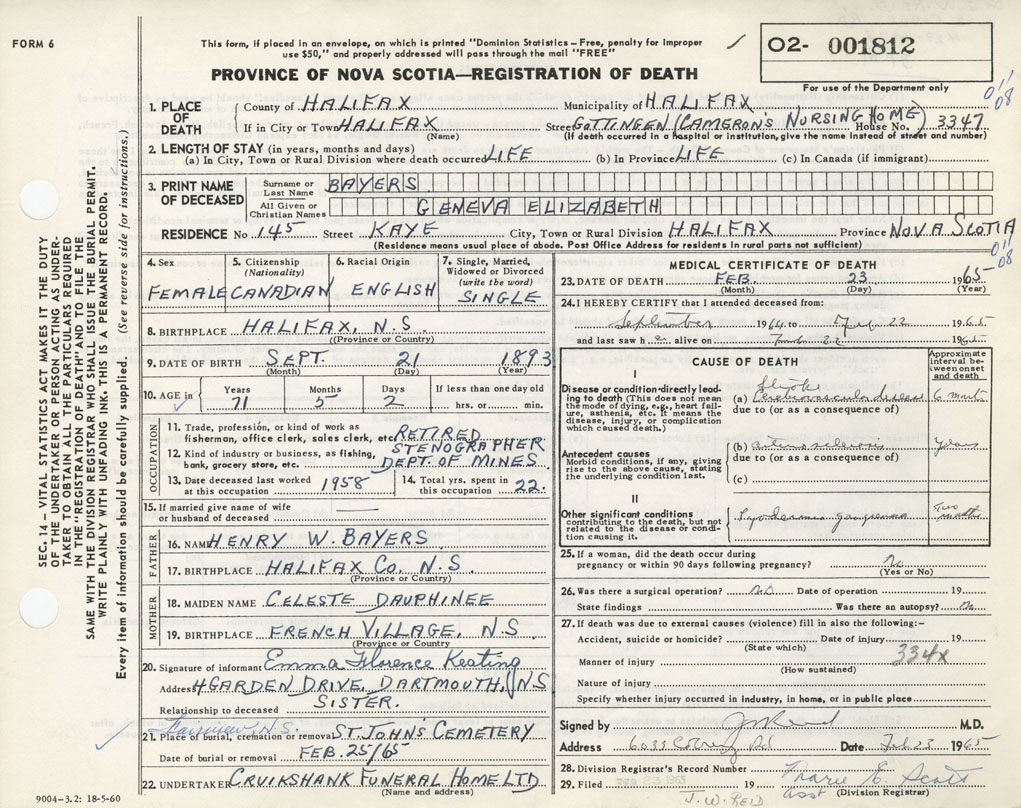 FORM 6
This form, if placed in an envelope, on which is printed "Dominion Statistics – Free, penalty for improper
use $50," and properly addressed will pass through the mail "FREE"
O2- 001812
For use of the Department only
PROVINCE OF NOVA SCOTIA—REGISTRATION OF DEATH
011
08
1. PLACE OF DEATH
County of HALIFAX Municipality of HALIFAX
If in City or Town HALIFAX (Name) Street GOTTINGEN (CAMERON'S NURSING HOME) House No. 3347
(If death occurred in a hospital or institution, give the name instead of street and number)
2. LENGTH OF STAY (in years, months and days)
(a) In City, Town or Rural Division where death occurred LIFE (b) In Province LIFE (c) In Canada (if immigrant)
3. PRINT NAME OF DECEASED
Surname or Last Name BAYERS
All Given or Christian Names GENEVA ELIZABETH
RESIDENCE No 145 Street KAYE City, Town or Rural Division HALIFAX Province NOVA SCOTIA
(Residence means usual place of abode. Post Office Address for residents in rural parts not sufficient)
011
08
4. Sex
FEMALE
5. Citizenship (Nationality)
CANADIAN
6. Racial Origin
ENGLISH
7. Single, Married, Widowed or Divorced (write the word)
SINGLE
8. BIRTHPLACE HALIFAX, N.S.
(Province or Country)
9. DATE OF BIRTH SEPT. 21 1893
(Month) (Day) (Year)
10. AGE in Years Months Days If less than one day old
71 5 2 hrs. or min.
OCCUPATION
11. Trade, profession, or kind of work as
fisherman, office clerk, sales clerk, etc. RETIRED
12. Kind of industry or business, as fishing, STENOGRAPHER
bank, grocery store, etc. DEPT. OF MINES
13. Date deceased last worked at this occupation 1958
14. Total yrs. spent in this occupation 22
15. If married give name of wife
or husband of deceased —
FATHER
16. NAME HENRY W. BAYERS
17. BIRTHPLACE HALIFAX CO. N.S.
(Province or Country)
MOTHER
18. MAIDEN NAME CELESTE DAUPHINEE
19. BIRTHPLACE FRENCH VILLAGE, N.S.
(Province or Country)
20. Signature of informant Emma Florence Keating
Address 4 GARDEN DRIVE, DARTMOUTH, N.S.
Relationship to deceased SISTER.
Fairview, N.S.
21. Place of burial, cremation or removal ST. JOHN'S CEMETERY
Date of burial or removal FEB. 25/65
22. UNDERTAKER CRUIKSHANK FUNERAL HOME LTD.
(Name and address)
MEDICAL CERTIFICATE OF DEATH
23. DATE OF DEATH FEB. 23 1965
(Month) (Day) (Year)
24. I HEREBY CERTIFY that I attended deceased from:
September 1964 to 22 1965
and last saw h e alive on 22 196
CAUSE OF DEATH
Approximate interval between onset and death
I
Disease or condition directly leading to death (This does not mean the mode of dying, e.g., heart failure, asthenia, etc. It means the disease, injury, or complication which caused death.)
(a) Cerebrovascular disease 6 mont
due to (or as a consequence of)
Antecedent causes
Morbid conditions, if any, giving rise to the above cause, stating the underlying condition last.
(b) years
due to (or as a consequence of)
(c)
II
Other significant conditions
contributing to the death, but not related to the disease or condition causing it.
Two months
25. If a woman, did the death occur during
pregnancy or within 90 days following pregnancy? No
(Yes or No)
26. Was there a surgical operation? no Date of operation 19
State findings Was there an autopsy? no
27. If death was due to external causes (violence) fill in also the following:–
Accident, suicide or homicide? Date of injury 19
(State which)
334X
Manner of injury
(How sustained)
Nature of injury
Specify whether injury occurred in industry, in home, or in public place
Signed by M.D.
Address Date Feb 23 1965
28. Division Registrar's Record Number
29. Filed 19 Marie E. Scott
asst (Division Registrar)
J. W. REID
SEC. 14 – VITAL STATISTICS ACT MAKES IT THE DUTY
OF THE UNDERTAKER OR PERSON ACTING AS UNDER-
TAKER TO OBTAIN ALL THE PARTICULARS REQUIRED
IN THE "REGISTRATION OF DEATH" AND TO FILE THE
SAME WITH THE DIVISION REGISTRAR WHO SHALL ISSUE THE BURIAL PERMIT.
WRITE PLAINLY WITH UNFADING INK. THIS IS A PERMANENT RECORD.
Every item of information should be carefully supplied. (See reverse side for instructions.)
9004-3.2: 18-5-60